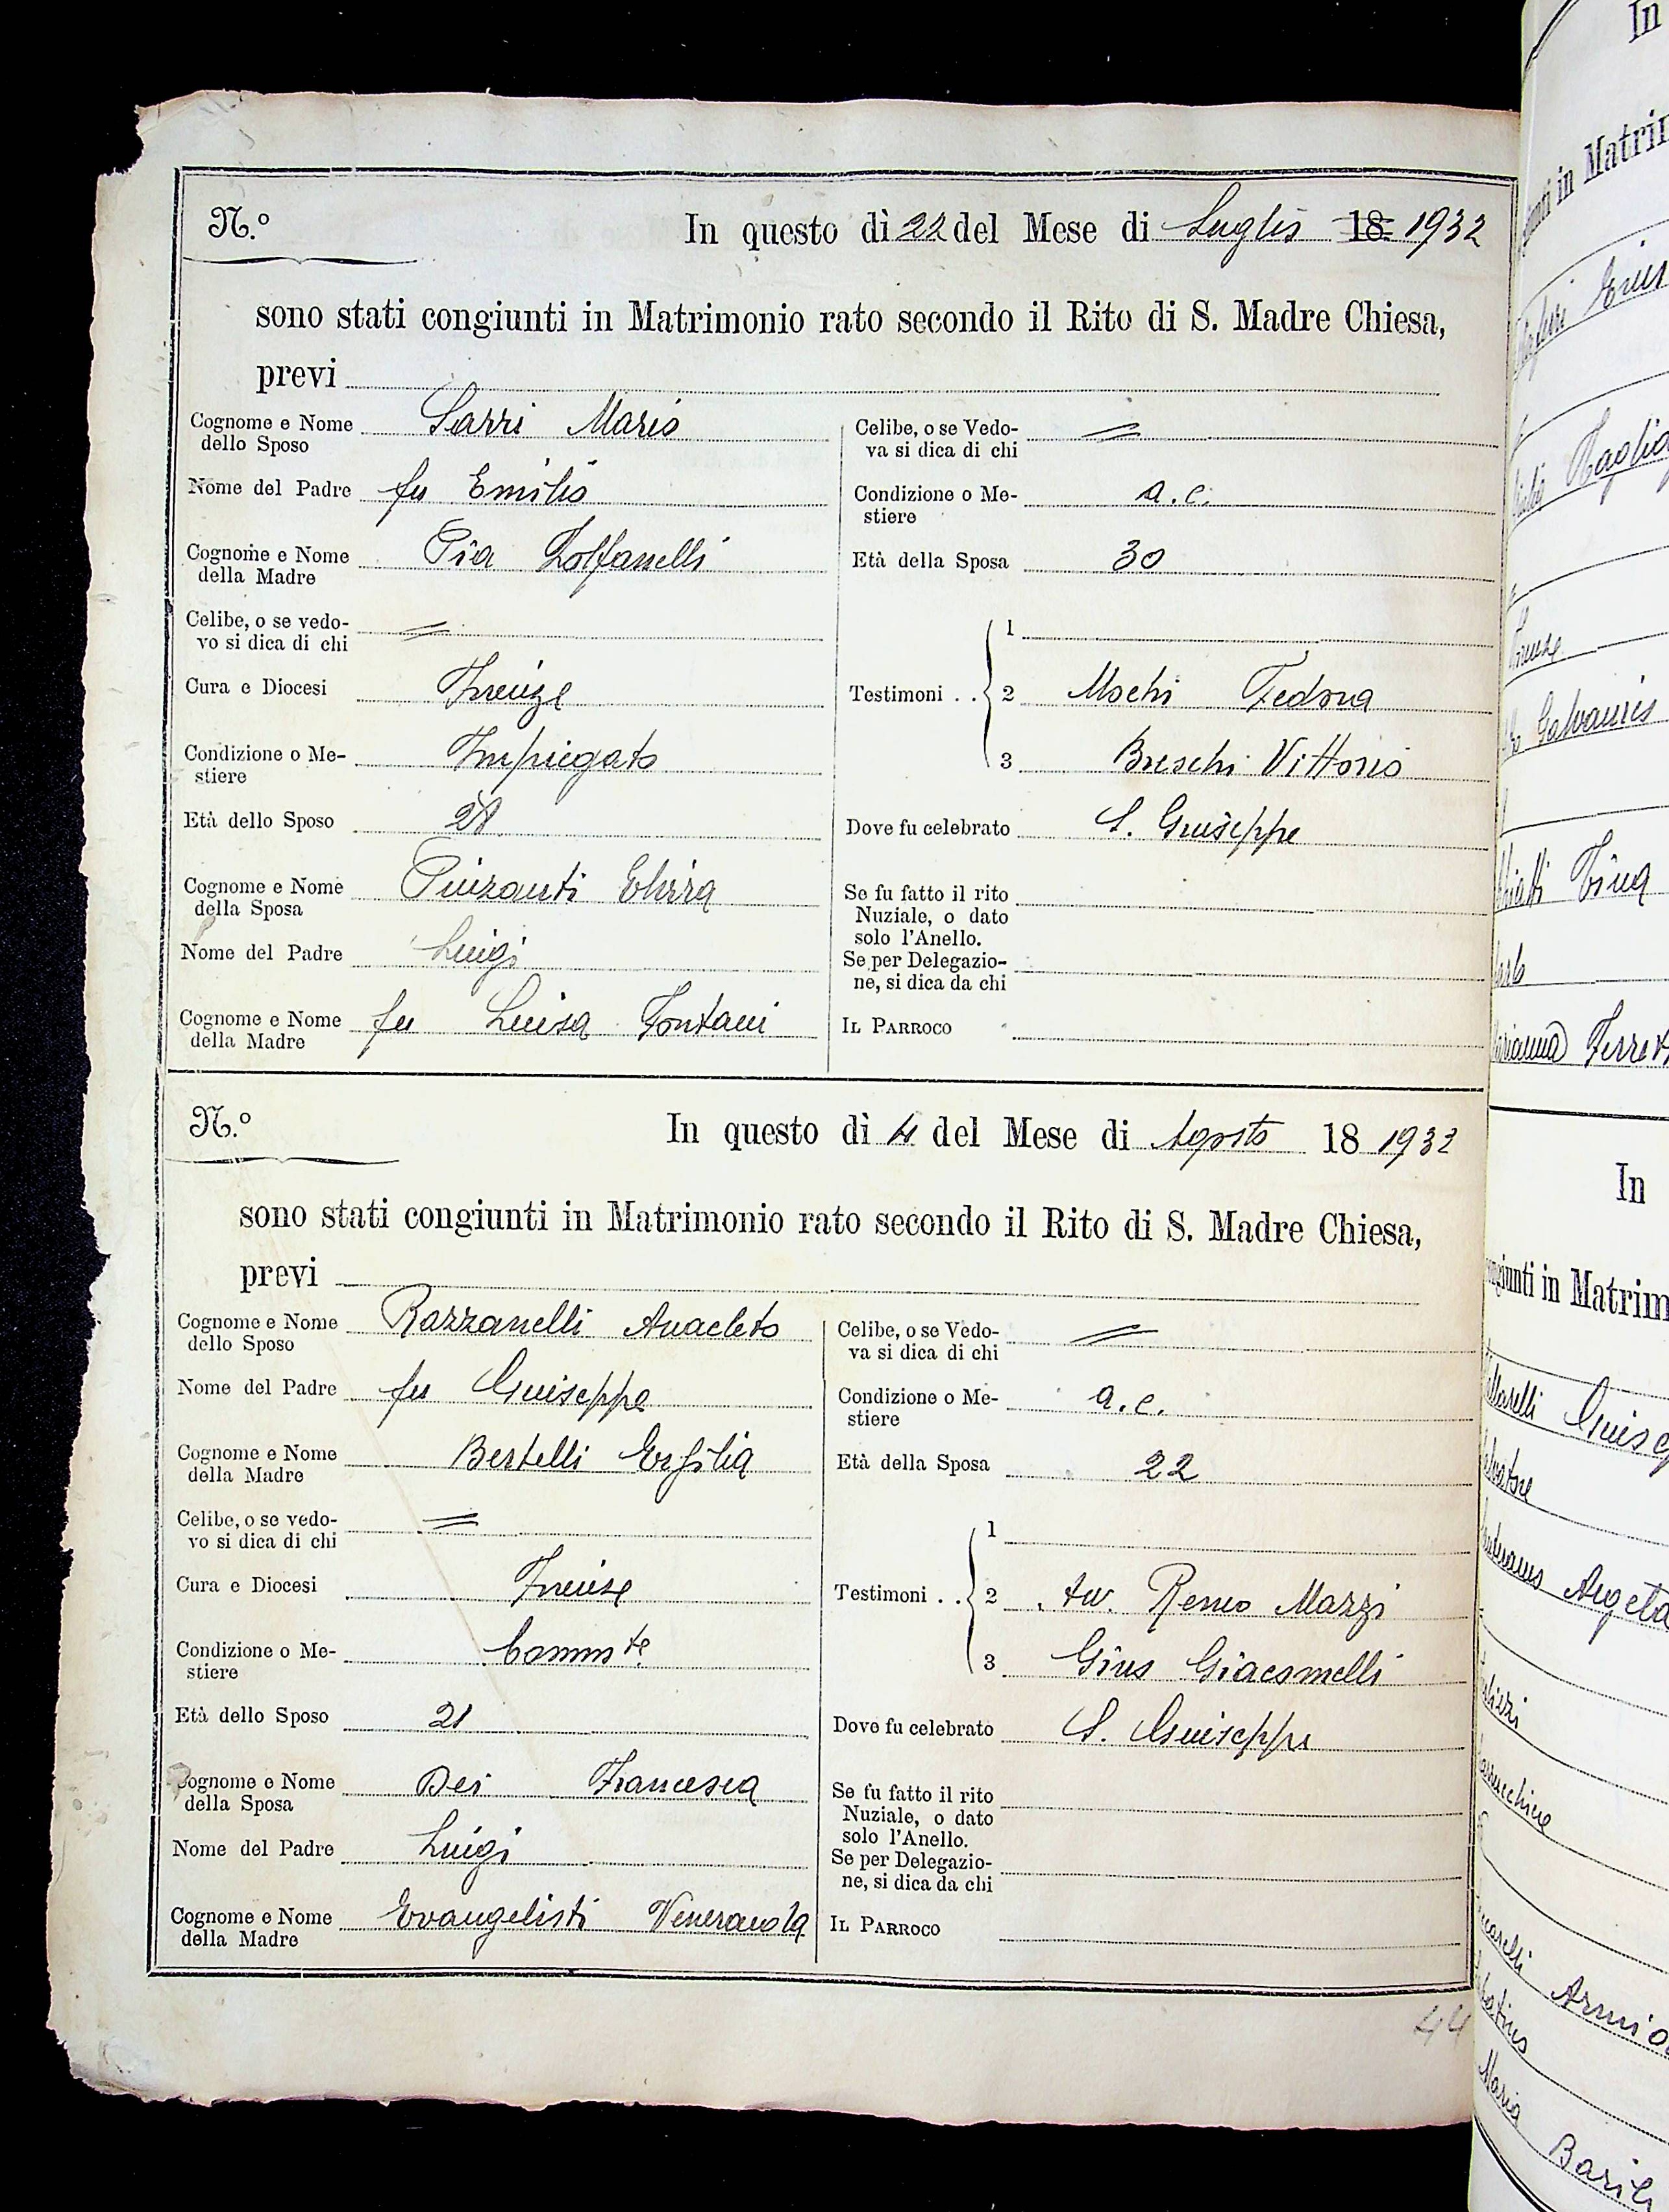 N.º
In questo dì 22 del Mese di Luglio 18 1932
sono stati congiunti in Matrimonio rato secondo il Rito di S. Madre Chiesa,
previ
Cognome e Nome dello Sposo Sarri Mario
Nome del Padre fu Emilio
Cognome e Nome della Madre Pia Zolfanelli
Celibe, o se vedovo si dica di chi =
Cura e Diocesi Firenze
Condizione o Mestiere Impiegato
Età dello Sposo 28
Cognome e Nome della Sposa Elvira
Nome del Padre Luigi
Cognome e Nome della Madre fu Luisa Fontani
Celibe, o se Vedova si dica di chi =
Condizione o Mestiere a.c.
Età della Sposa 30
Testimoni . . 1
2 Mochi Fedora
3 Breschi Vittorio
Dove fu celebrato S. Giuseppe
Se fu fatto il rito Nuziale, o dato solo l'Anello.
Se per Delegazione, si dica da chi
IL PARROCO
N.º
In questo dì 4 del Mese di Agosto 18 1932
sono stati congiunti in Matrimonio rato secondo il Rito di S. Madre Chiesa,
previ
Cognome e Nome dello Sposo Razzanelli Anacleto
Nome del Padre fu Giuseppe
Cognome e Nome della Madre Bertelli Ersilia
Celibe, o se vedovo si dica di chi =
Cura e Diocesi Firenze
Condizione o Mestiere Comm.te
Età dello Sposo 21
Cognome e Nome della Sposa Dei Francesca
Nome del Padre Luigi
Cognome e Nome della Madre Evangelisti Veneranda
Celibe, o se Vedova si dica di chi =
Condizione o Mestiere a.c.
Età della Sposa 22
Testimoni . . 1
2 Avv. Remo Mazzi
3 Gius Giacomelli
Dove fu celebrato S. Giuseppe
Se fu fatto il rito Nuziale, o dato solo l'Anello.
Se per Delegazione, si dica da chi
IL PARROCO
44
In
In